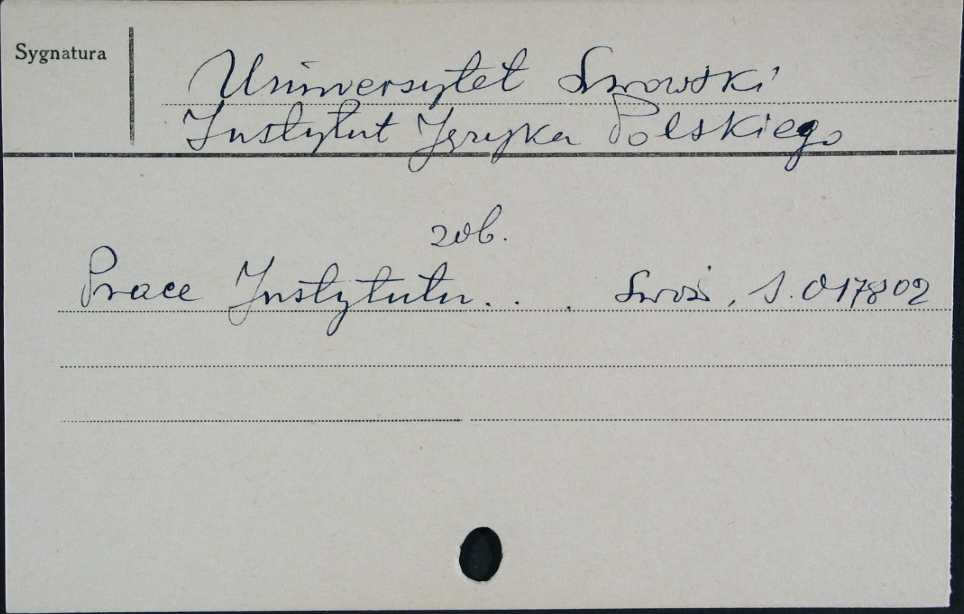 Sygnatura
Uniwersytet Lwowski
Instytut Języka Polskiego
zob.
Prace Instytutu . . . Lwów, S. 017802